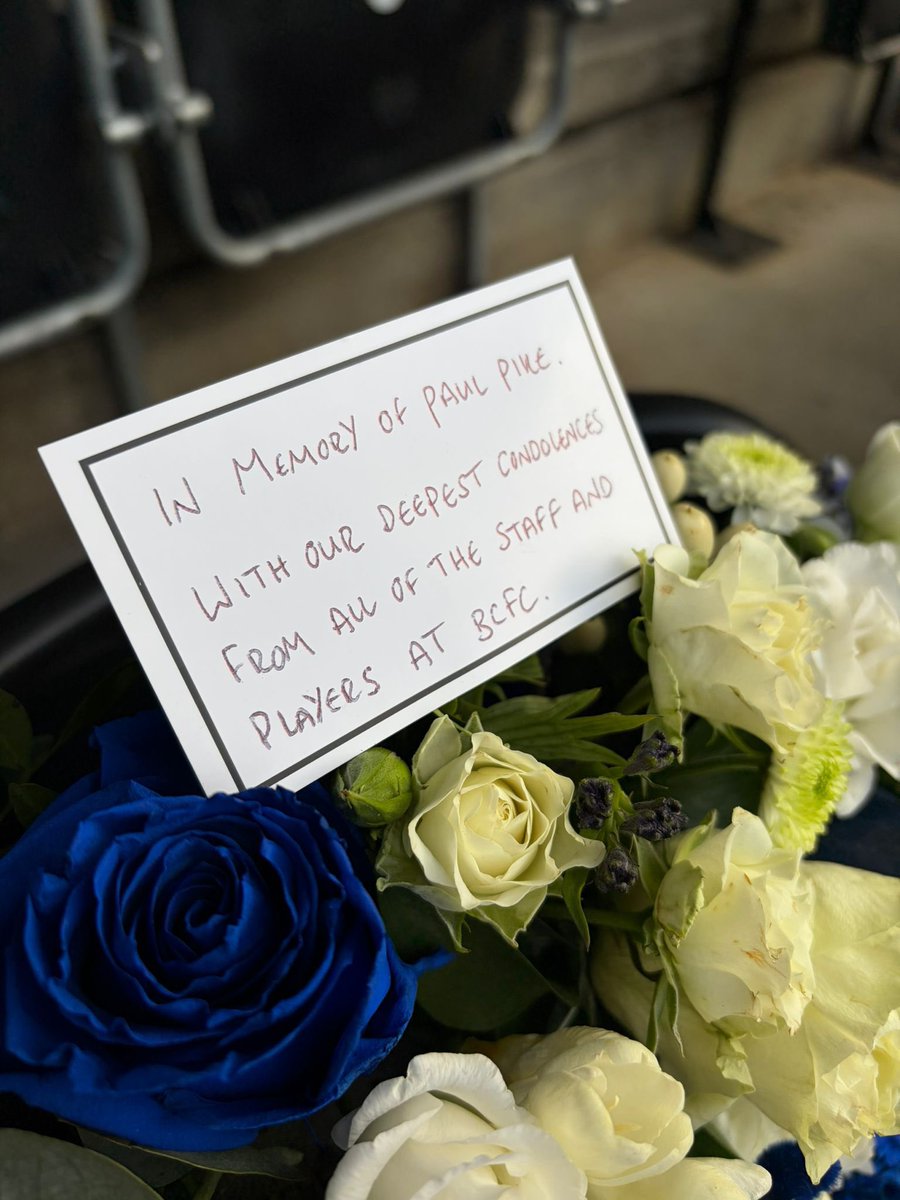 IN MEMORY OF PAUL PIKE.
WITH OUR DEEPEST CONDOLENCES
FROM ALL OF THE STAFF AND
PLAYERS AT BCFC.